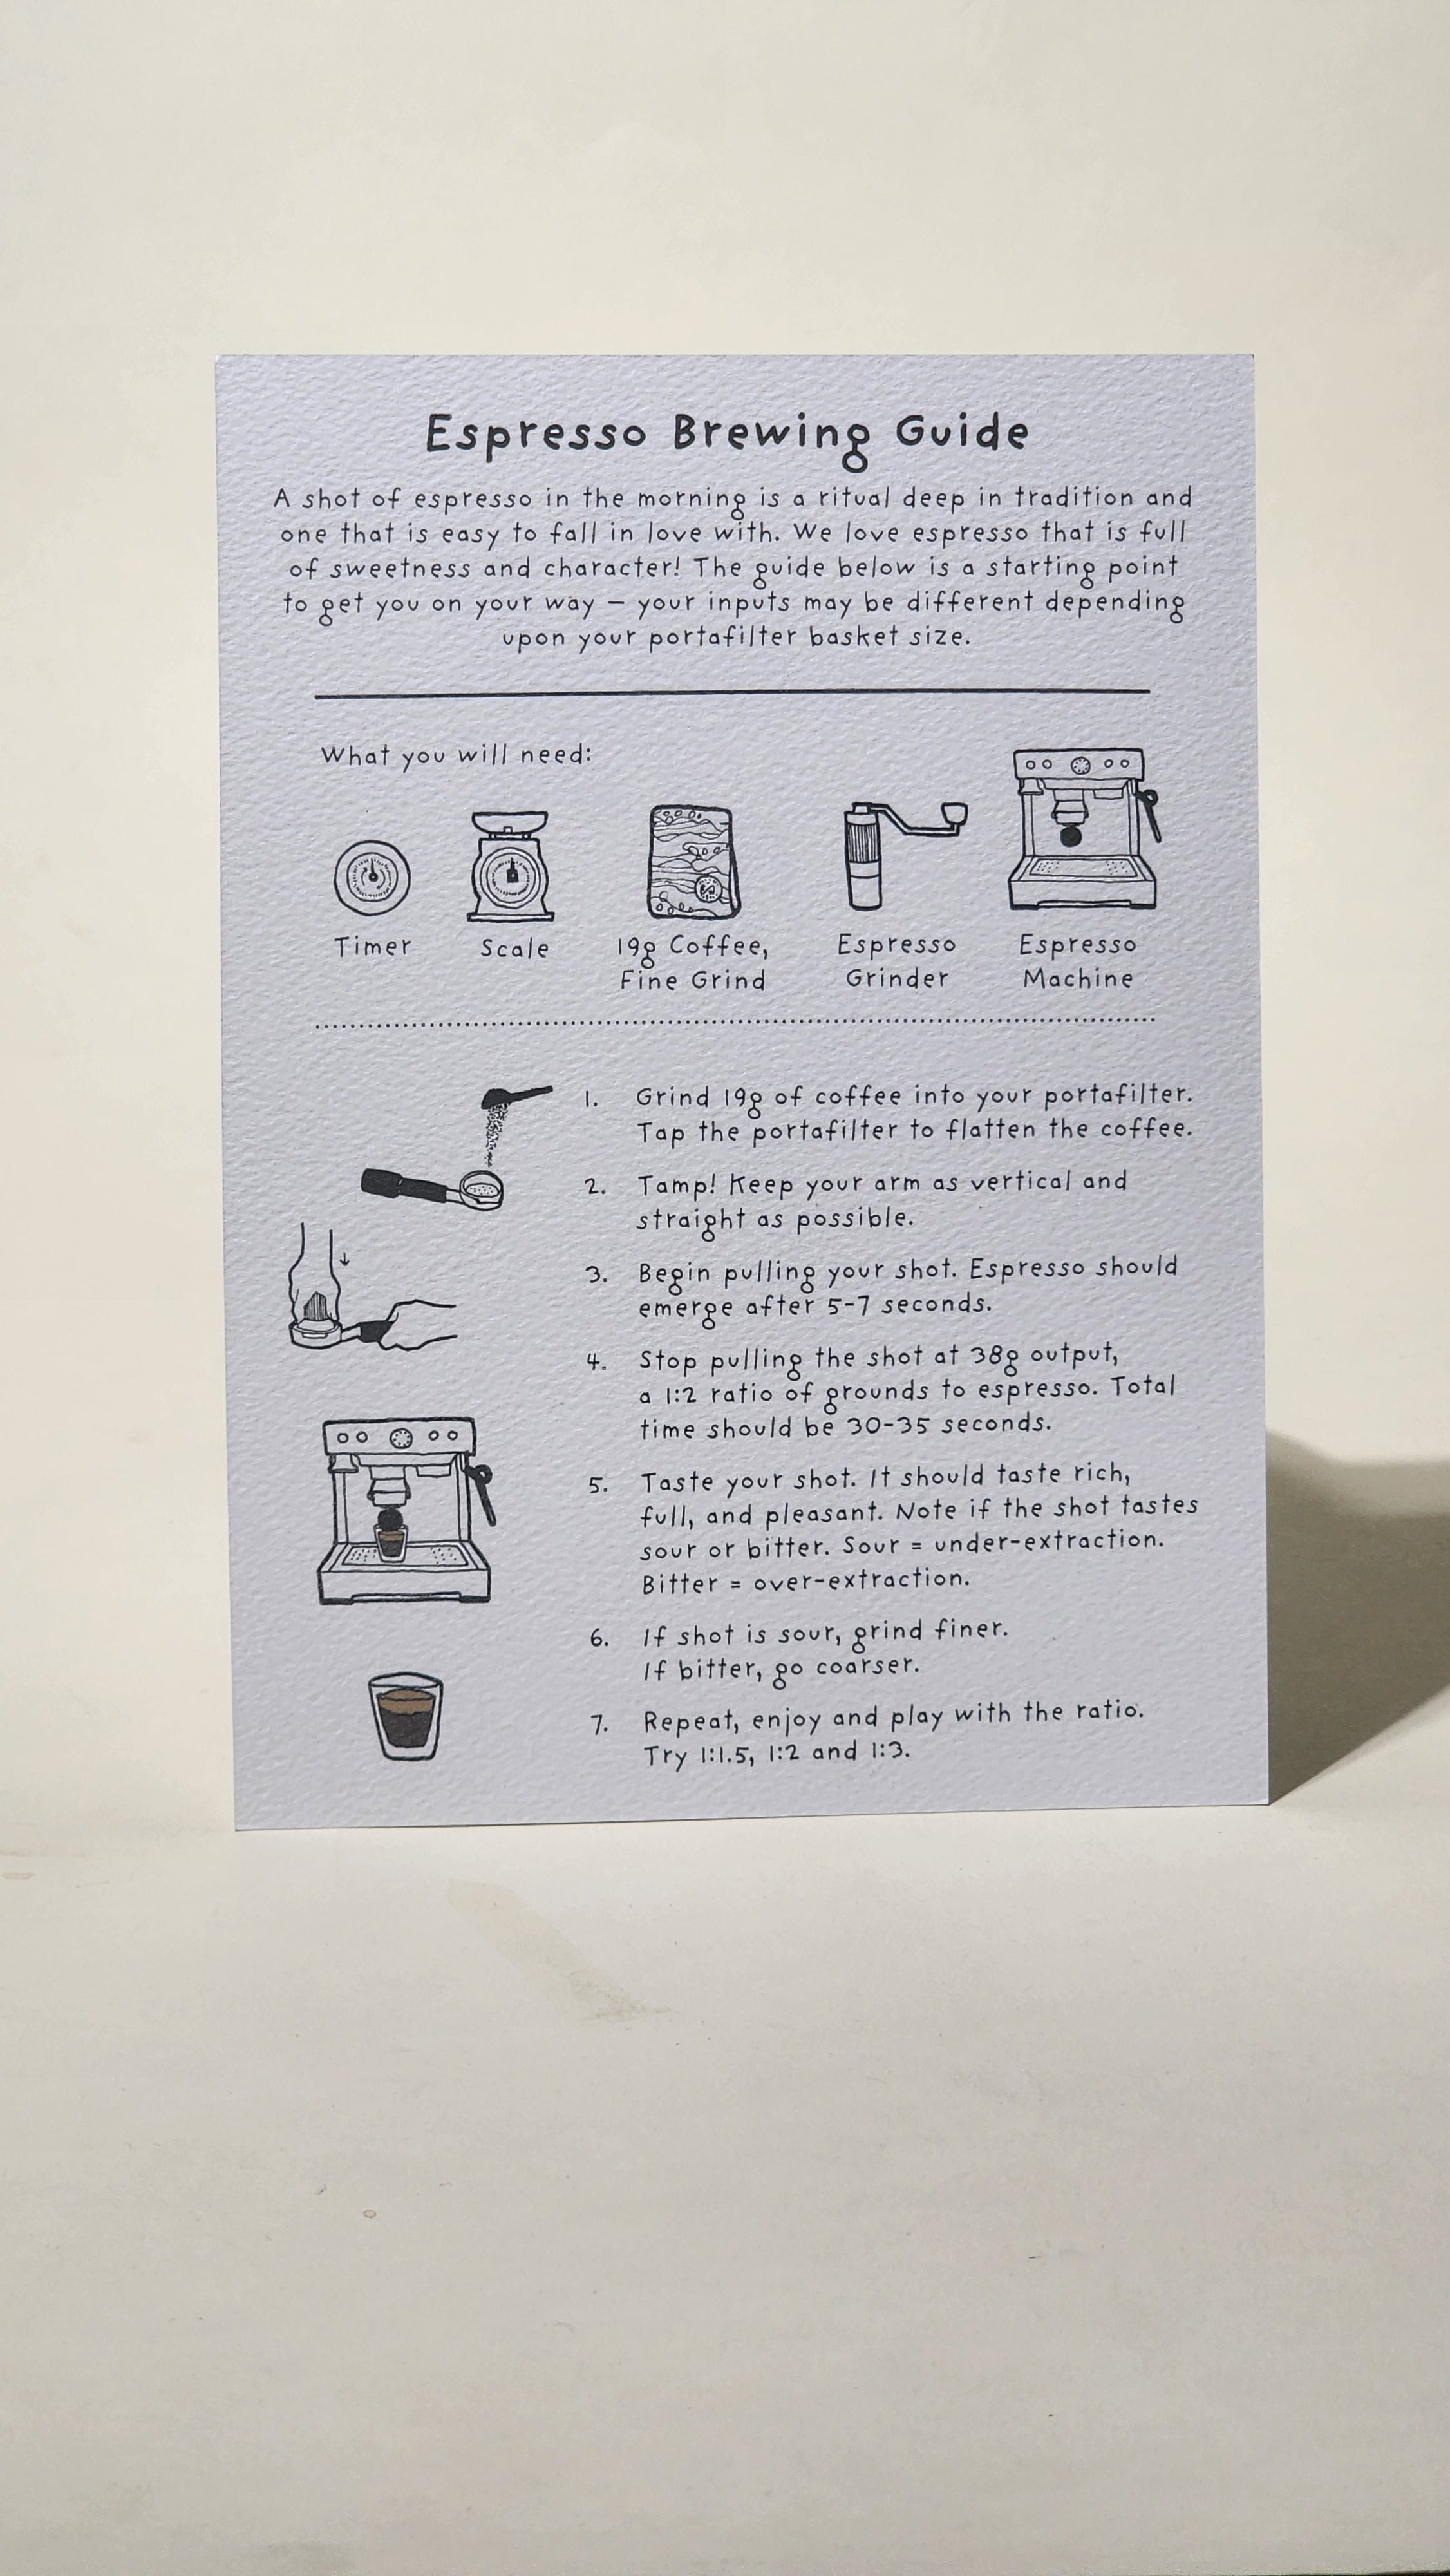 Espresso Brewing Guide
A shot of espresso in the morning is a ritual deep in tradition and
one that is easy to fall in love with. We love espresso that is full
of sweetness and character! The guide below is a starting point
to get you on your way – your inputs may be different depending
upon your portafilter basket size.
What you will need:
Timer
Scale
19g Coffee,
Fine Grind
Espresso
Grinder
Espresso
Machine
1. Grind 19g of coffee into your portafilter.
Tap the portafilter to flatten the coffee.
2. Tamp! Keep your arm as vertical and
straight as possible.
3. Begin pulling your shot. Espresso should
emerge after 5-7 seconds.
4. Stop pulling the shot at 38g output,
a 1:2 ratio of grounds to espresso. Total
time should be 30-35 seconds.
5. Taste your shot. It should taste rich,
full, and pleasant. Note if the shot tastes
sour or bitter. Sour = under-extraction.
Bitter = over-extraction.
6. If shot is sour, grind finer.
If bitter, go coarser.
7. Repeat, enjoy and play with the ratio.
Try 1:1.5, 1:2 and 1:3.